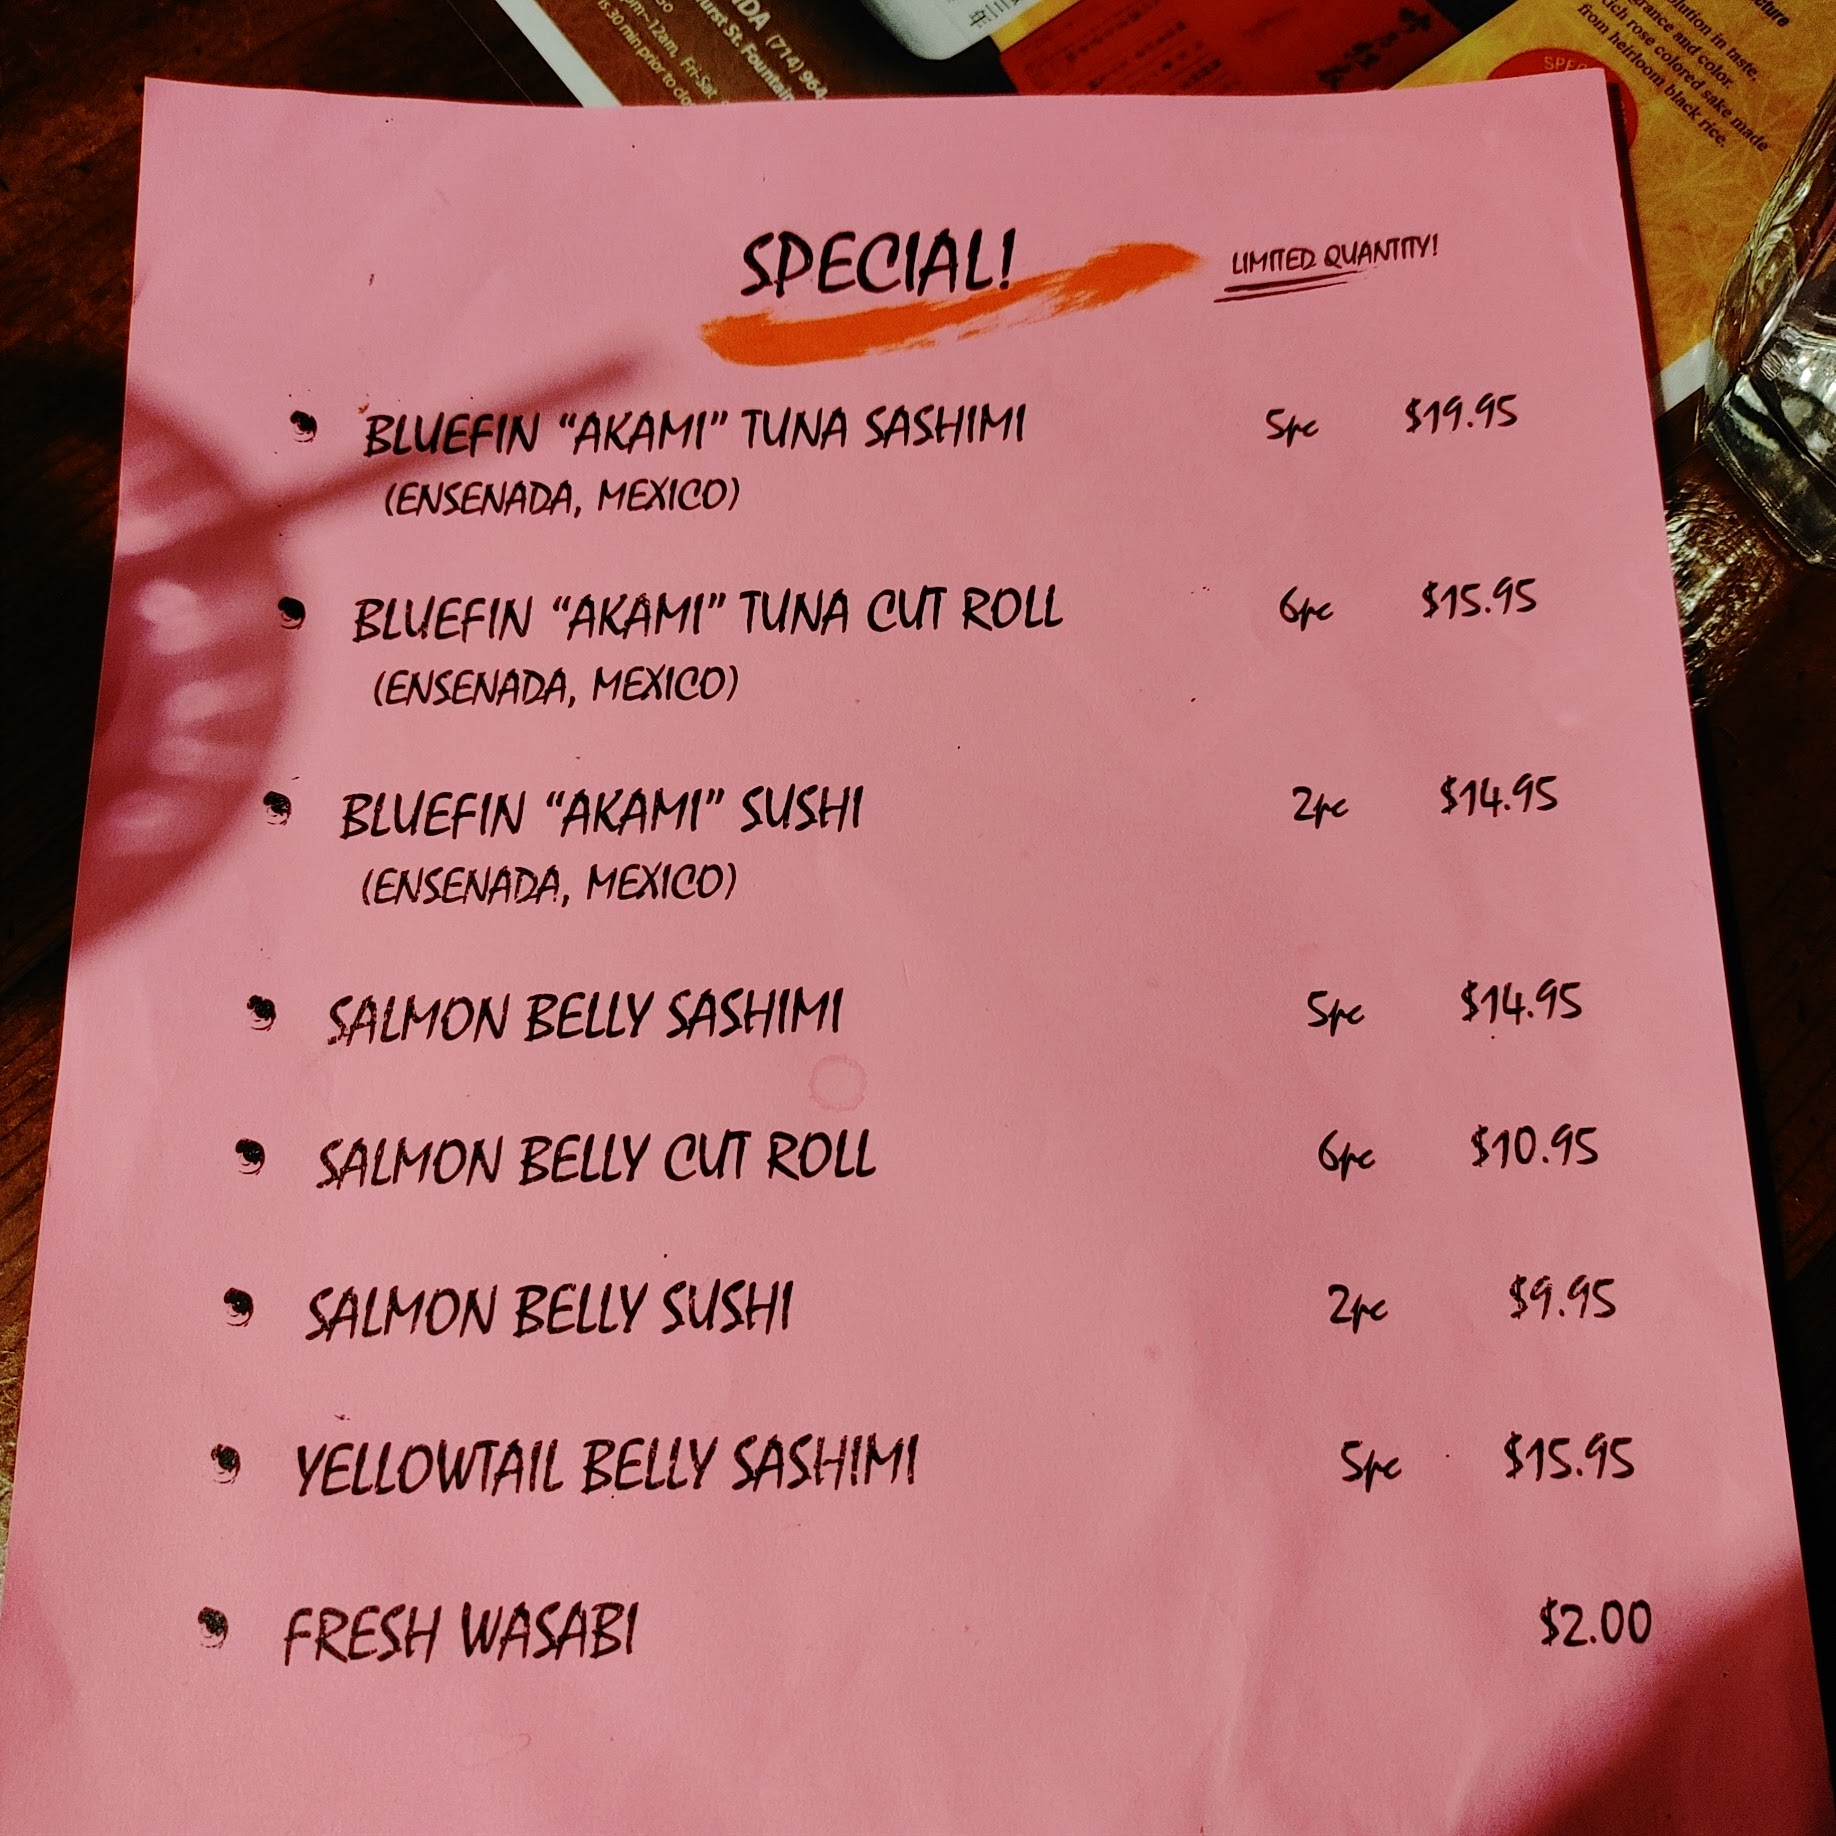 NDA (714) 964
hurst St. Fountain
pm-12am, Fri-Sat
is 30 min prior to clo
olution in taste,
grance and color.
ich rose colored sake made
from heirloom black rice.
SPECIAL!
LIMITED QUANTITY!
BLUEFIN “AKAMI” TUNA SASHIMI 5pc $19.95
(ENSENADA, MEXICO)
BLUEFIN “AKAMI” TUNA CUT ROLL 6pc $15.95
(ENSENADA, MEXICO)
BLUEFIN “AKAMI” SUSHI 2pc $14.95
(ENSENADA, MEXICO)
SALMON BELLY SASHIMI 5pc $14.95
SALMON BELLY CUT ROLL 6pc $10.95
SALMON BELLY SUSHI 2pc $9.95
YELLOWTAIL BELLY SASHIMI 5pc $15.95
FRESH WASABI $2.00